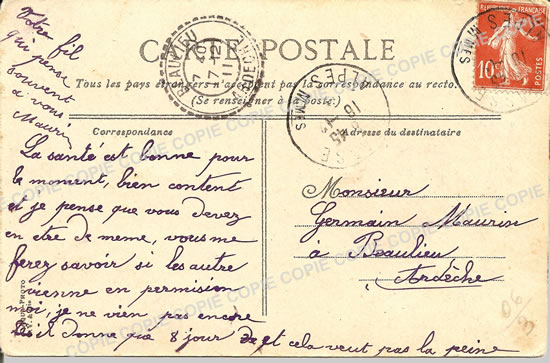 Votre fil
qui pense
souvent
a vous
Maurin
CARTE POSTALE
Tous les pays étrangers n'acceptent pas la correspondance au recto.
(Se renseigner à la poste)
Correspondance
Adresse du destinataire
La santé est bonne pour
le moment, bien content
et je pense que vous devez
en etre de meme, vous me
ferez savoir si les autre
vienne en permission
moi, je ne vien pas encore
il donne que 8 jour et cela veut pas la peine
Monsieur
Germain Maurin
à Beaulieu
Ardèche
BEAULIEU
7 20
7-12
11
ARDECHE
ALPES
NIMES
18
REPUBLIQUE FRANÇAISE
10
POSTES
NIMES
PHOTO
COPIE COPIE COPIE COPIE